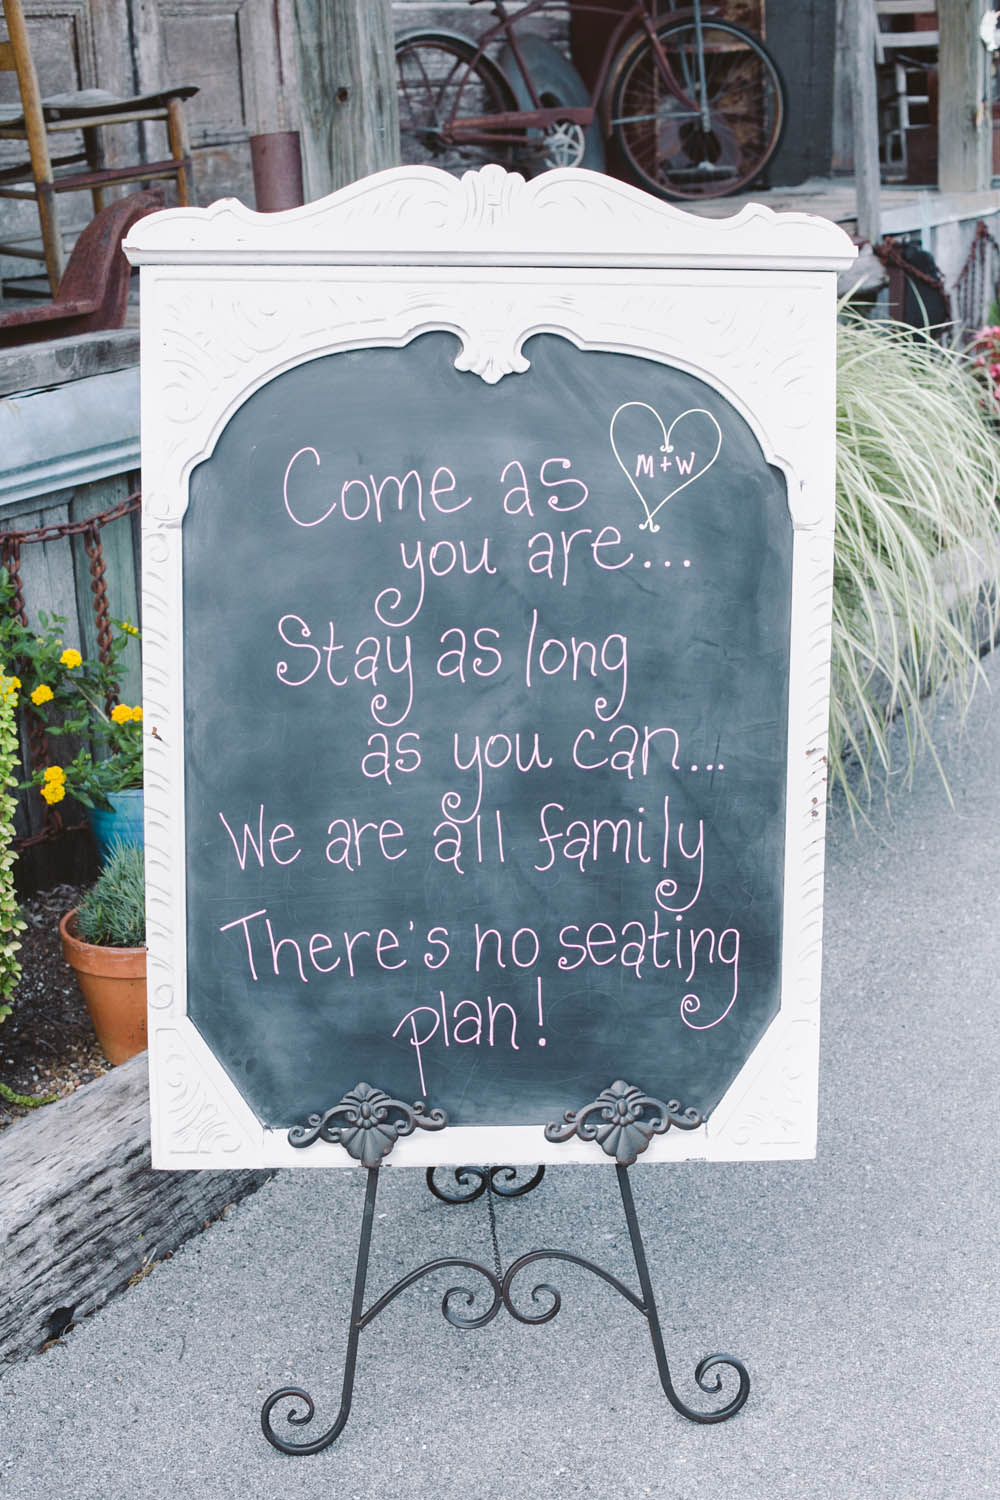 M + W
Come as
you are...
Stay as long
as you can...
We are all family
There's no seating
plan!